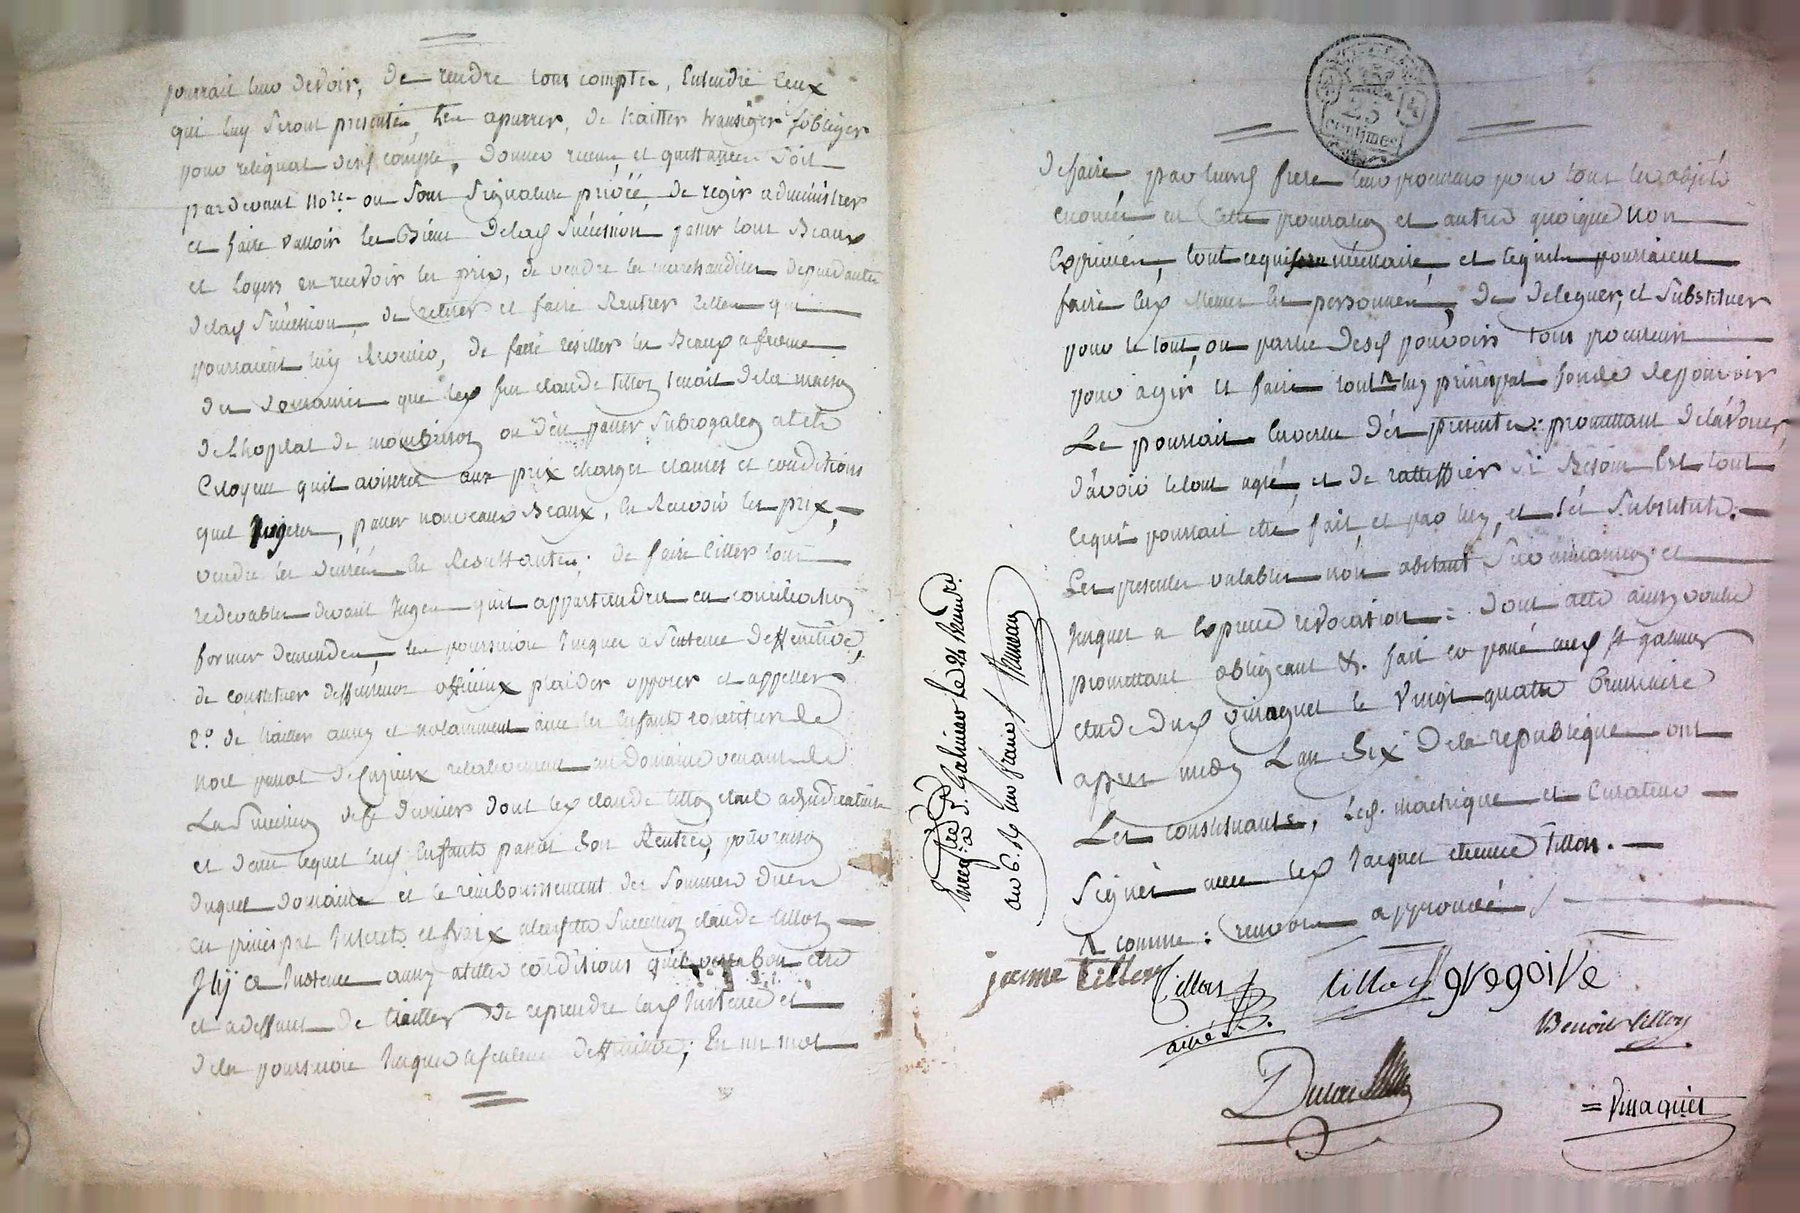 pourrait leur devoir, de rendre tous comptes, Entendre Ceux
qui luy seront presentés, les apurrer, de traitter transiger s'obliger
pour reliquat desd. compte, donner receu, et quittances soit
pardevant nore. ou sous signature privéé, de regir administrer
et faire valloir les Biens delad. succession, passer tous Beaux
et loyers en recevoir les prix, de vendre les marchandises dependantes
delad. succession, de retirer et faire Rentrer celles qui
pourraient luy de faire resillier les Beaux a ferme
des domaines que led. feu claude tillon tenait de la maison
de Lhopital de ou d'en passer subrogation a tels
Citoyens quil avisera aux prix charges clauses et conditions
quil passer nouveaux Beaux, En Recevoir les prix,
vendre les denrées En Resultantes; de faire citter tous
redevables devant Juges quil appartiendra en conciliation
former demandes, les poursuivre Jusques a sentence deffinitive,
de constituer deffenseurs officieux plaider opposer et appeller
2o. de traitter aussy et notamment avec les Enfants
noel panot relativement au Domaine venant de
La succession de ce dernier dont led. claude tillon etait adjudicataire
et dans lequel lesd. Enfants panot sont Rentrés, pour raison
duquel domaine et le remboursement des sommes dues
en principal Interets et frais alad. succession claude tillon
Il y a Instance aussy a telles conditions quil verra bon etre
et adeffaut de traitter de reprendre lad. Instance et
dela poursuivre Jusques a sentence deffinitive; En un mot
25
centimes
de faire par leurd. frere leur procureur pour tous les objets
enoncés en Cette procuration et autres quoique non
Exprimés, tout cequi sera nécessaire, et cequils pourraient
faire Eux memes En personnes, de deleguer, et substituer
pour le tout, ou partie desd. pouvoirs tous procureurs
pour agir et faire tout luy principal fondé de pouvoir
Le pourrait En vertu des presentes: promettant de l'avouer,
d'avoir letout agréé, et de rattiffier si Besoin Est tout
cequi pourrait etre fait, et par luy, et ses substituts.
Les presentes valables non obstant surannation et
Jusques a Expresse revocation: dont acte ainsy voulu
promettant obligeant &. fait et passé aud. st galmier
etude dud. vinaquet le Vingt quatre Brumaire
apres midy L'an Six De la republique ont
Les constituants, Led. et Curateur
signés avec led. Jacques etienne Tillon.
comme: renvoi approuvéé
Enregtré. à S. Galmier le 24 Brumre.
an 6.
jaeme tillon
Tillon
ainé
tillon
gregoire
Benoit tillon
= Vinaquet